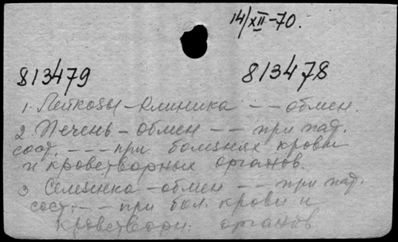 14/XII-70.
813479 813478
1. Лейкозы - клиника -- обмен.
2. Печень - обмен -- при пат.
сост. --- при болезнях крови
и кроветворных органов.
3. Селезенка - обмен -- при пат.
сост. -- при бол. крови и
кроветворн. органов